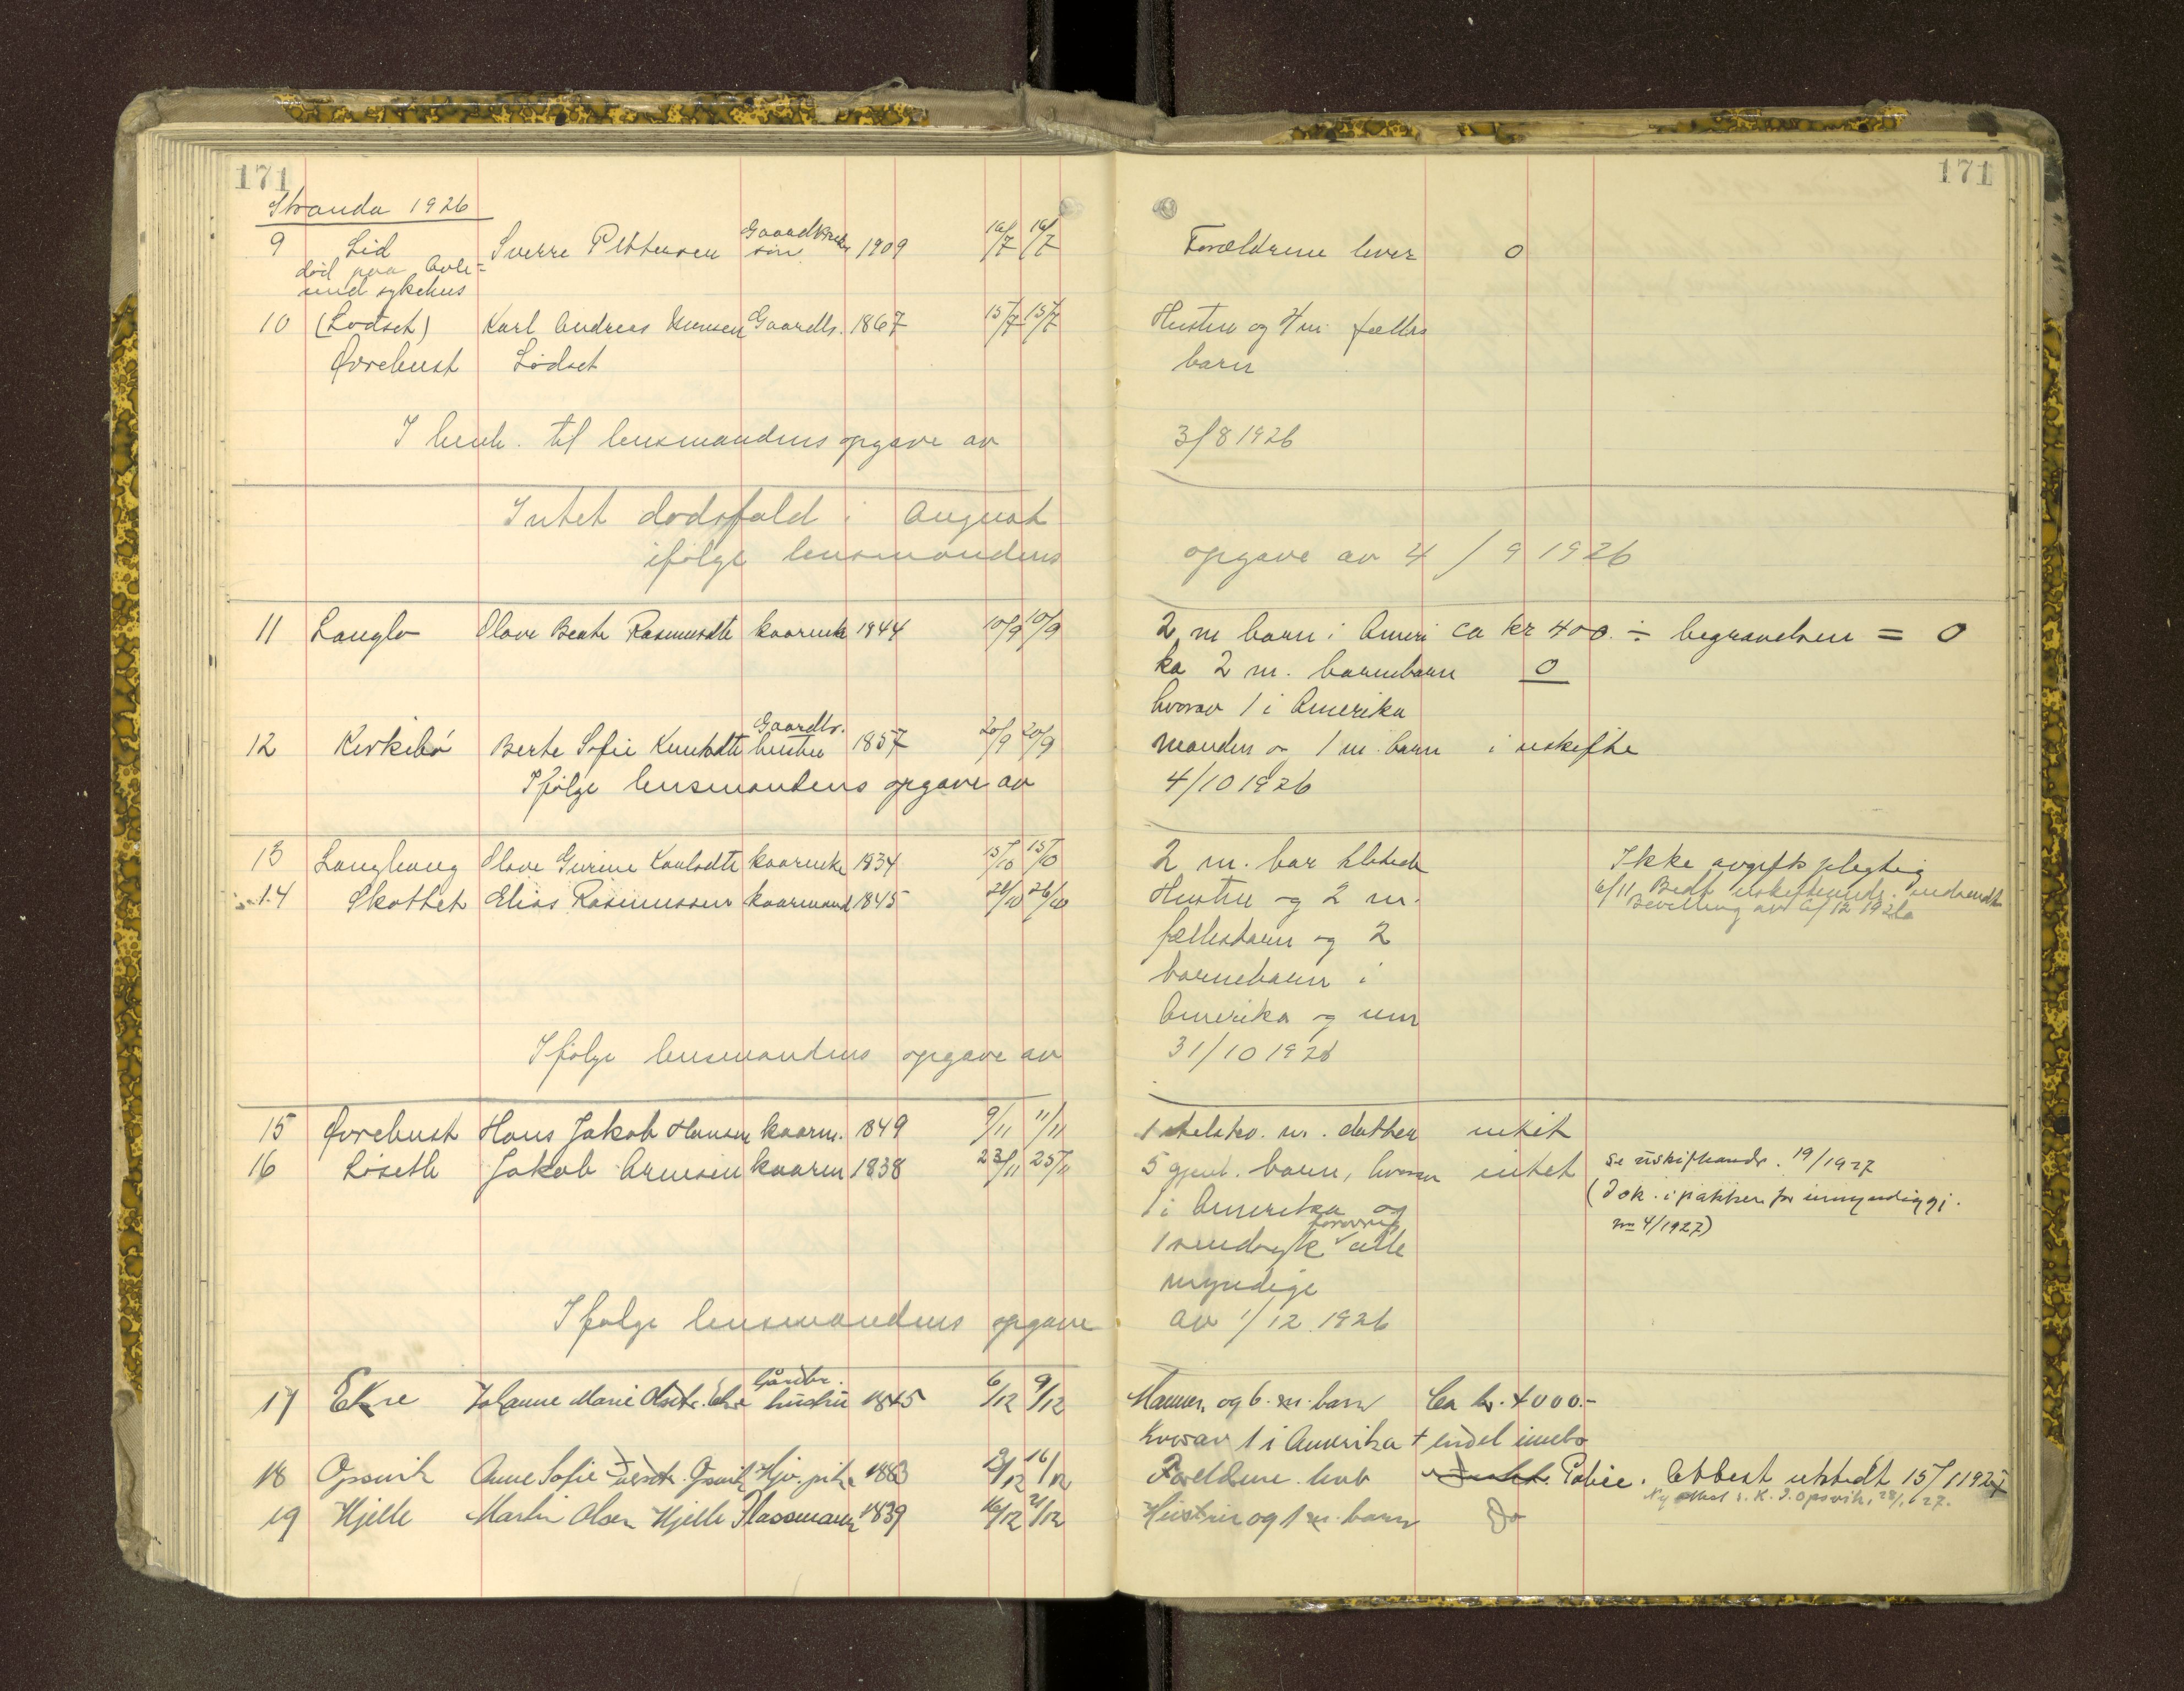 171
171
Stranda 1926
9 Lid Sverre Pettersen Gaardbruker søn 1909 16/7 16/7 Forældrene lever 0
død paa Aale-
sund sykehus
10 (Lødset) Karl Andreas Gaardbr. 1867 15/7 15/7 Hustru og 4 m. fælles
Øvrebust Lødset barn
I henh. til lensmandens opgave av 3/8 1926
Intet dødsfald i August
ifølge lensmandens opgave av 4/9 1926
11 Langlo Olave Beate Rasmusdtr kaarenke 1844 10/9 10/9 2 m barn i Ameri ca kr 400. ÷ begravelsen = 0
ka 2 m. barnebarn 0
hvorav 1 i Amerika
12 Kirkebø Berte Sofie Knutsdtr Gaardbr. hustru 1857 20/9 20/9 manden og 1 m. barn i uskifte
Ifølge lensmandens opgave av 4/10 1926
13 Langhaug Olave Gurine Karlsdtr kaarenke 1834 15/10 15/10 2 m. bar Ikke avgiftspligtig
14 Skotthet Elias Rasmussen kaarmand 1845 26/10 Hustru og 2 m. 6/11
Bevilling av 12 1926
fællesbarn og 2
barnebarn i
Amerika og um
Ifølge lensmandens opgave av 31/10 1926
15 Øvrebust Hans Jakob Hansen kaarm. 1849 9/11 11/11 1 m. datter intet
16 Løseth Jakob Arnesen kaarm 1838 23/11 25/11 5 gjenl. barn, hvorav intet se uskifteandr. 19/1927
1 i Amerika og (Dok. i pakken for umyndiggj.
1 sindssyk alle no 4/1927)
myndige
Ifølge lensmandens opgave av 1/12 1926
17 Ekre Johanne Marie Olsdtr. Ekre Gårdbr. hustru 1845 6/12 9/12 Mannen og 6 m. barn Ca kr. 4000.-
hvorav 1 i Amerika + endel innbo
18 Opsvik Anne Sofie Opsvik 1883 16/12 Foreldrene Attest utstedt 15/1 1927
Ny attest s. K. J. Opsvik, 28/1 27.
19 Hjelle Martin Olsen Hjelle Plassmann 1839 16/12 21/12 Hustru og 1 m. barn Do